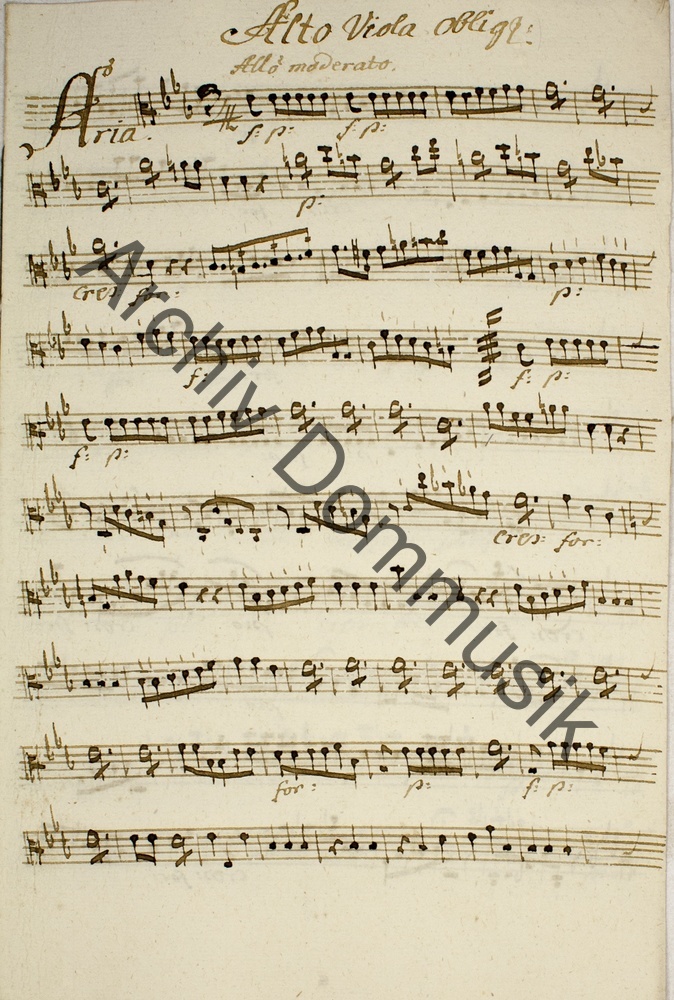 Alto Viola oblig:
Allo moderato.
Aria.
f: p: f: p:
p:
cres for: p:
f: f: p:
f: p:
cres: for:
for: p: f: p:
Archiv Dommusik